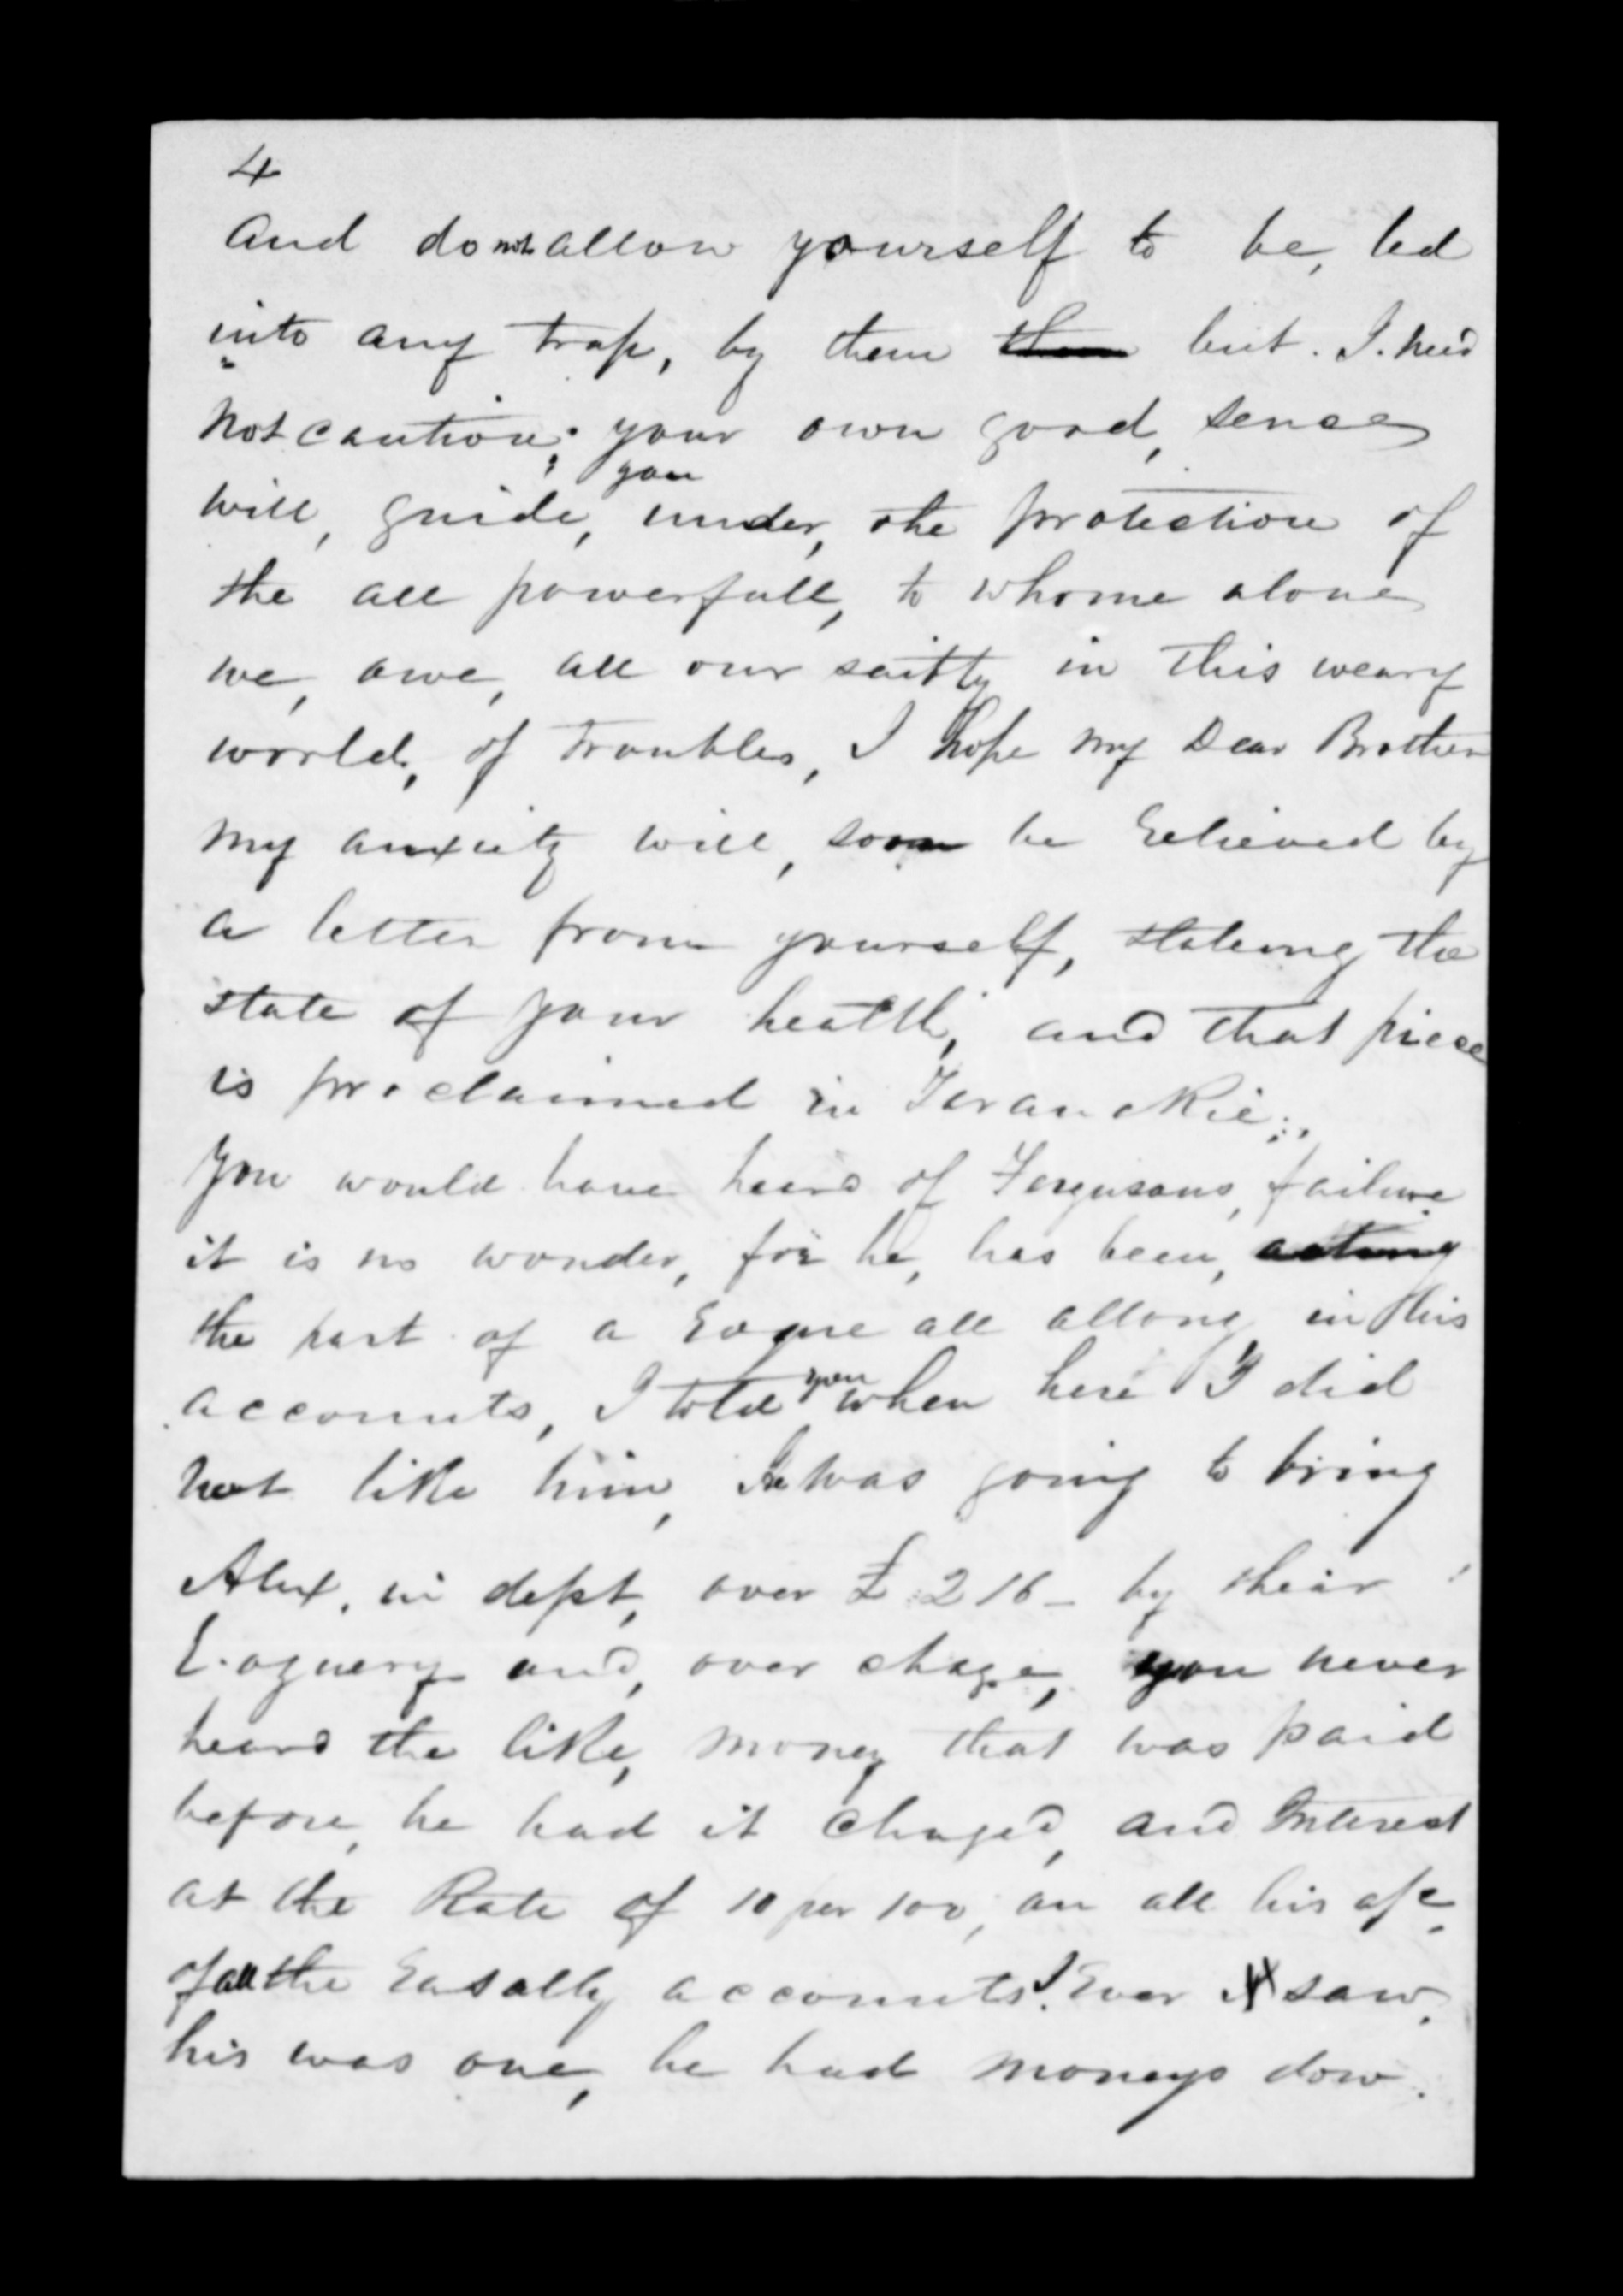 4
And do not allow yourself to be, led
into any trap, by them them but. I. need
not caution; your own good, sence
will, guide, you under, the protection of
the all powerfull, to whome alone
we, owe, all our saifty in this weary
world, of troubles, I hope my Dear Brother
my anxiety will, soon be Relieved by
a letter from yourself, stateing the
state of your health, and that piece
is proclaimed in Taranckie;.
You would have heard of Fergusons, failure
it is no wonder, for he, has been, acting
the part of a Rogue all allong in his
accounts, I told you when here I did
not like him, he was going to bring
Alex. in dept, over £216 - by their
Roguery and, over chage, you never
heard the like, money that was paid
before, he had it chaged, and Interest
at the Rate of 10 per 100, on all his a/c
of all the Rasally accounts. I Ever saw,
his was one, he had moneys dow.